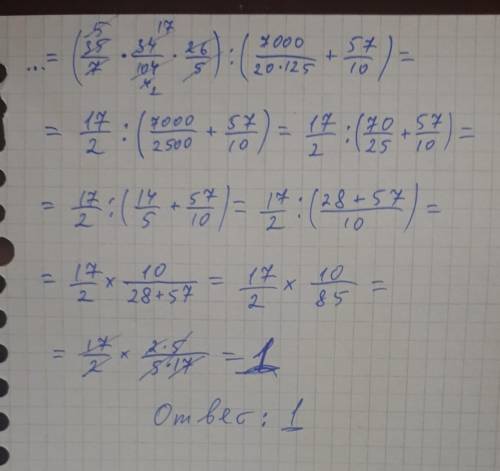 5 17
... = (35/7 · 34/104 · 26/5) : (7000/20·125 + 57/10) =
4 1
= 17/2 : (7000/2500 + 57/10) = 17/2 : (70/25 + 57/10) =
= 17/2 : (14/5 + 57/10) = 17/2 : (28+57/10) =
= 17/2 × 10/28+57 = 17/2 × 10/85 =
= 17/2 × 2·5/5·17 = 1
Ответ: 1